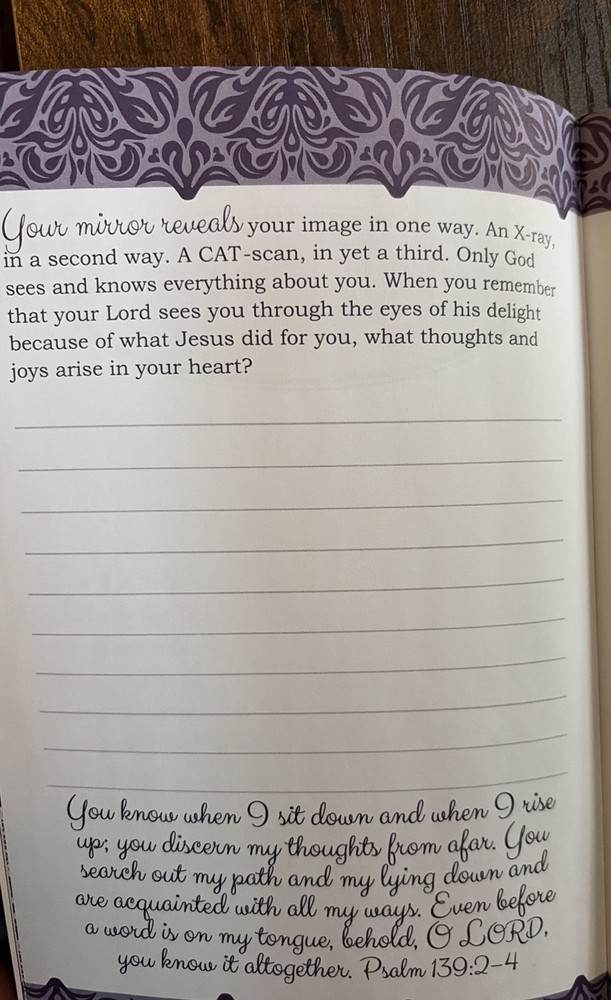 Your mirror reveals your image in one way. An X-ray,
in a second way. A CAT-scan, in yet a third. Only God
sees and knows everything about you. When you remember
that your Lord sees you through the eyes of his delight
because of what Jesus did for you, what thoughts and
joys arise in your heart?
You know when I sit down and when I rise
up; you discern my thoughts from afar. You
search out my path and my lying down and
are acquainted with all my ways. Even before
a word is on my tongue, behold, O LORD,
you know it altogether. Psalm 139:2–4